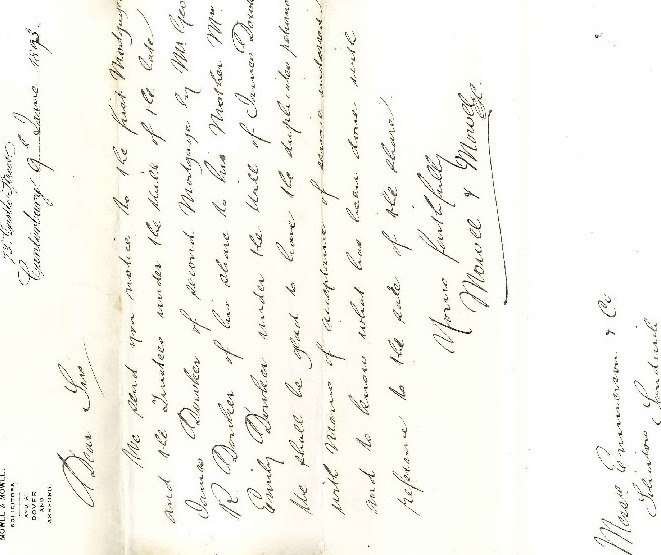 MOWLL & MOWLL.
SOLICITORS.
DOVER
AND
ASHFORD.
Castle Street
Canterbury 9 June 1893
Dear Sirs
We send you notice to the first Mortgagee
and the Trustees under the Will of the late
James Dunker of second Mortgage by Mr Geo
R Dunker of his share to his Mother Mrs
Emily Dunker under the Will of James Dunker
We shall be glad to have the duplicates returned
with Memo of acceptance of service endorsed
and to know what has been done with
reference to the sale of the share.
Yours faithfully
Mowll & Mowll
Messrs Emmerson & Co
Solicitors Sandwich